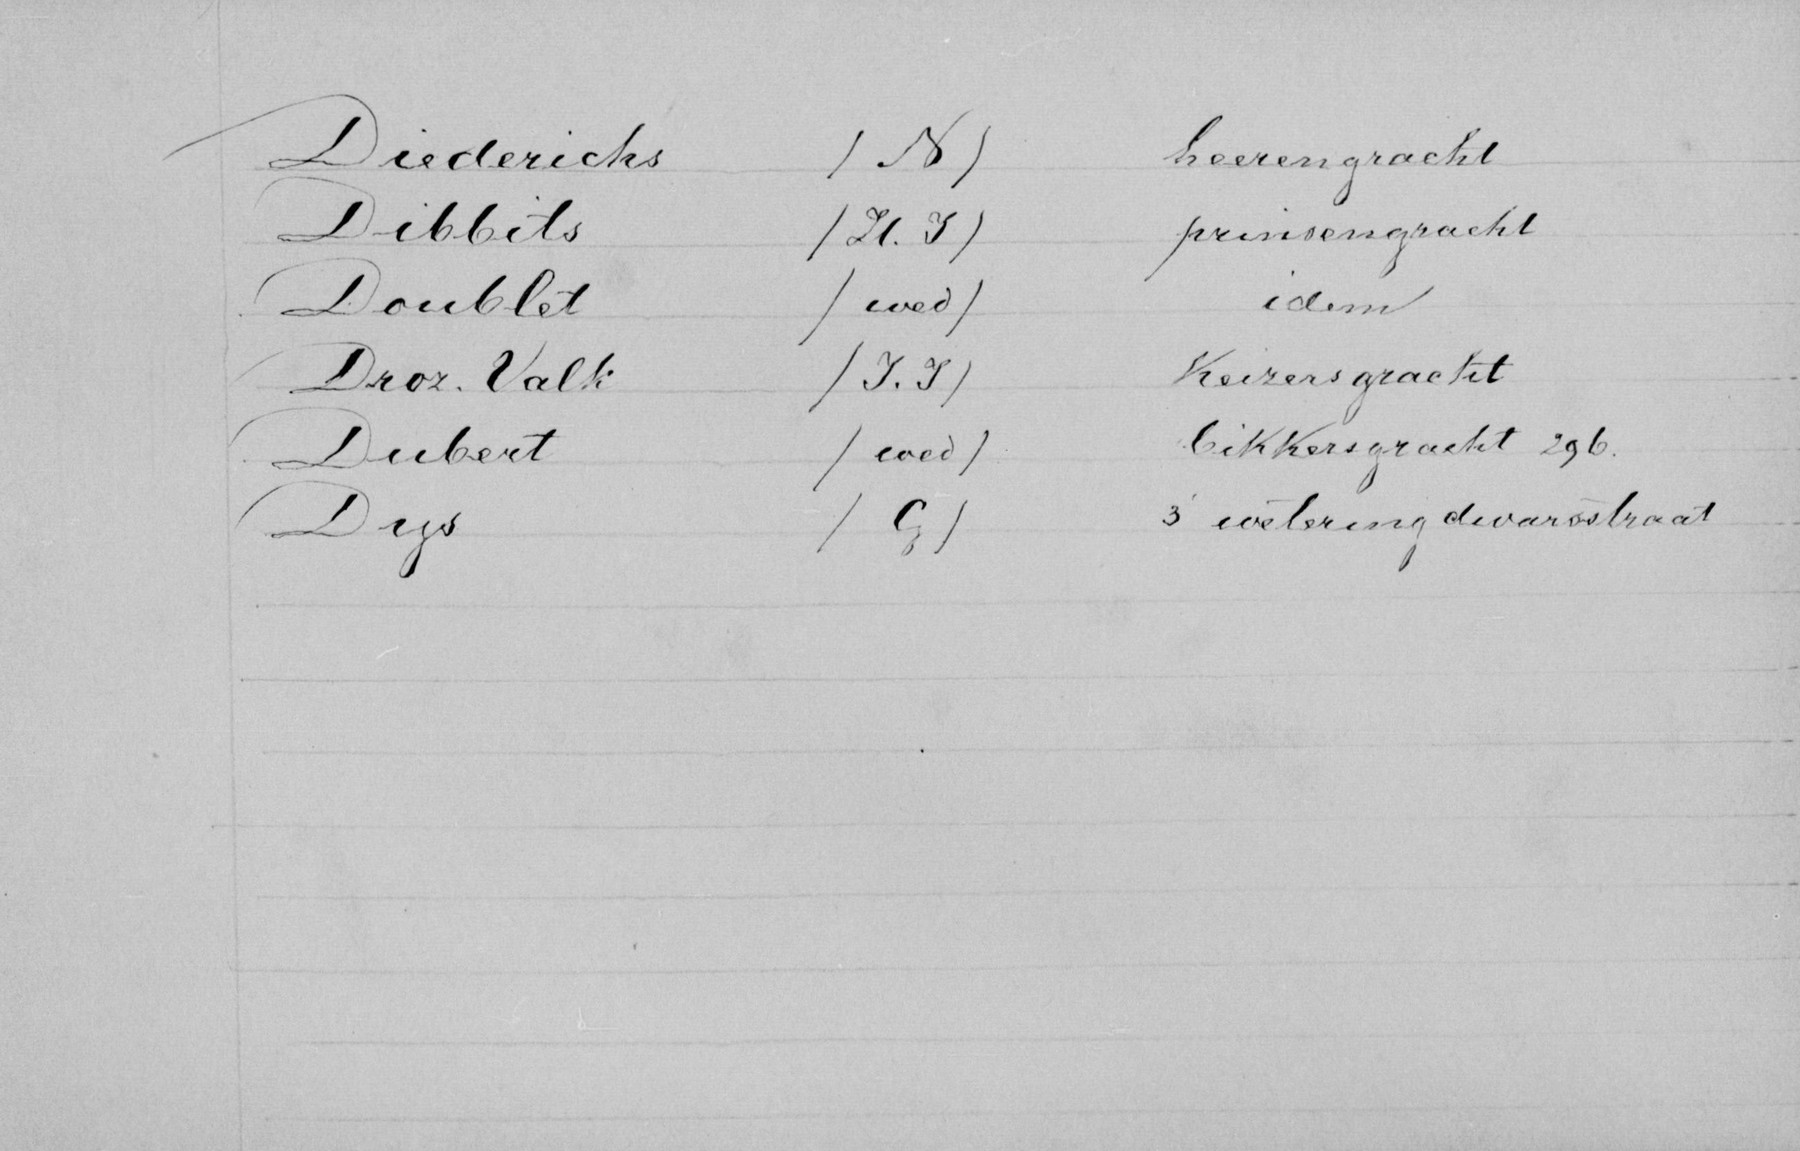 Diederichs / N / heerengracht
Dibbits / H. J / prinsengracht
Doublet / wed / idem
Droz. Valk / J. J / Keizersgracht
Dubert / wed / bikkersgracht 296.
Dys / G / 3 wetering dwarsstraat